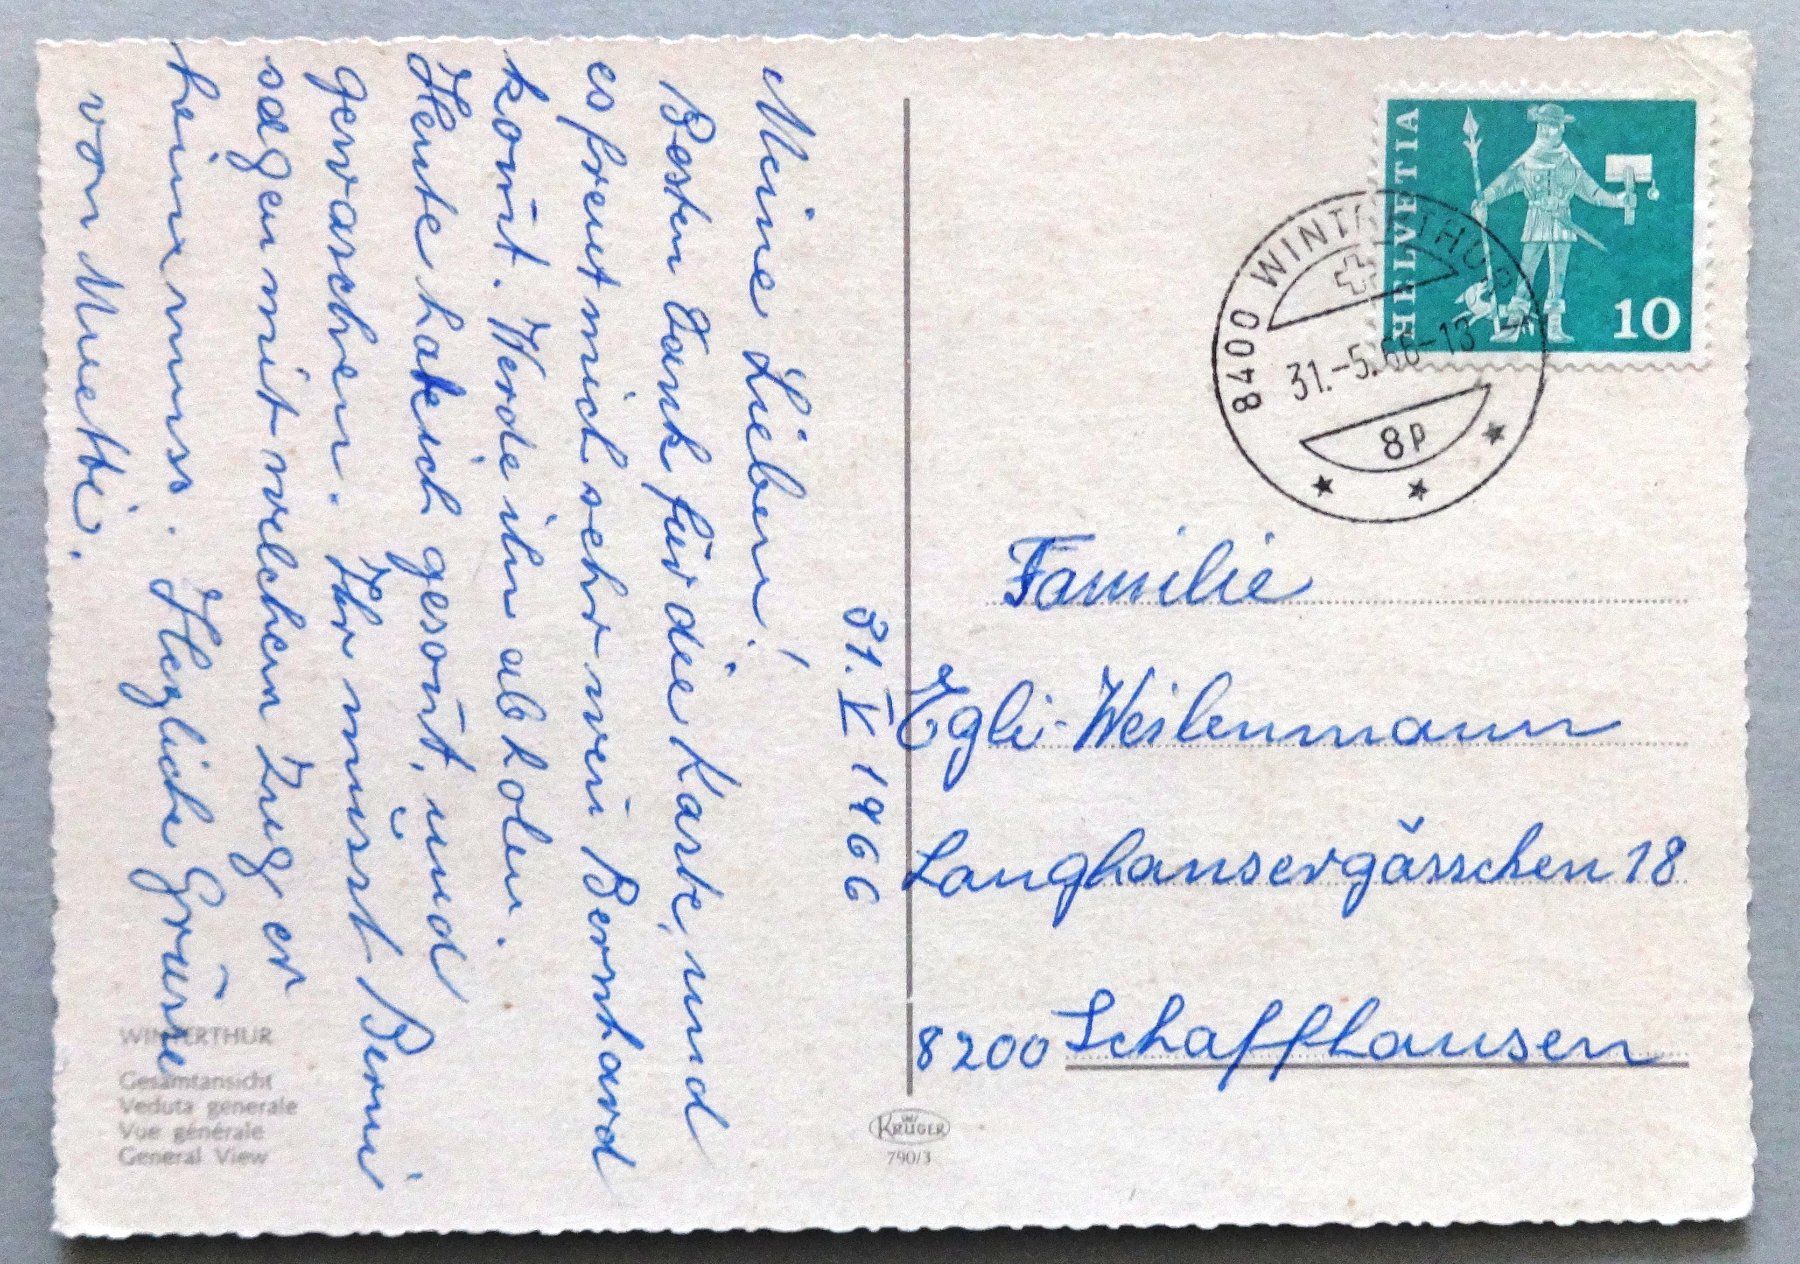 31. V 1966
Meine Lieben!
Besten Dank für die Karte, und
es freut mich sehr wen Bernhard
kom̄t. Werde ihn abholen.
Heute hat ich gesont, und
gewaschen. Ihr müsst Berni
sagen mit welchem Zug er
heim muss. Hezliche Grüsse
von Muetti.
WINTERTHUR
Gesamtansicht
Veduta generale
Vue générale
General View
KRÜGER
790/3
HELVETIA
10
8400 WINTERTHUR
31.-5.66-13
8p
Familie
Egli-Weilenmann
Langhansergässchen 18
8200 Schaffhausen